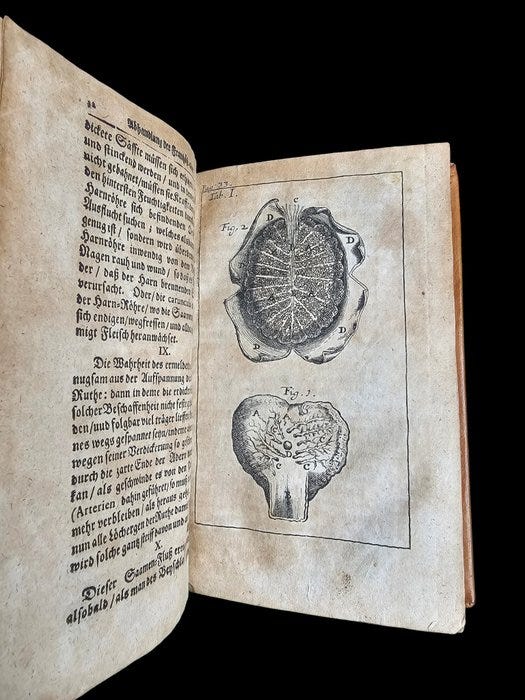 32
Abhandlung der
dickere Säffte müssen sich
und stinckend werden / und
nicht gebahnet / müssen sie
den hintersten Feuchtigkeiten
Harnröhre sich befindenden
Ausflucht suchen; welches
genug ist / sondern wird
Harnröhre inwendig von dem
Nagen rauh und wund / so daß
der / daß der Harn brennenden
verursacht. Oder / die carunculæ
der Harn-Röhre / wo die Saamen
sich endigen / wegfressen / und
migt Fleisch heranwächset.
IX.
Die Wahrheit des ermeldeten
nugsam aus der Aufspannung
Ruthe: dann in deme die
solcher Beschaffenheit nicht
den / und folgbar viel träger
nes wegs gespannet seyn / indeme
wegen seiner Verdickerung so
durch die zarte Ende der Adern
kan / als geschwinde es von den
(Arterien dahin geführet / so muß
mehr verbleiben / als heraus
nun alle Löchergen der Ruthe
wird solche gantz steiff davon und
X.
Dieser Saamen-Fluß
alsobald / als man des
Pag. 33.
Tab. I.
Fig. 2.
C
D
D
A
A
D
D
Fig. 1.
A
D
C
C
B